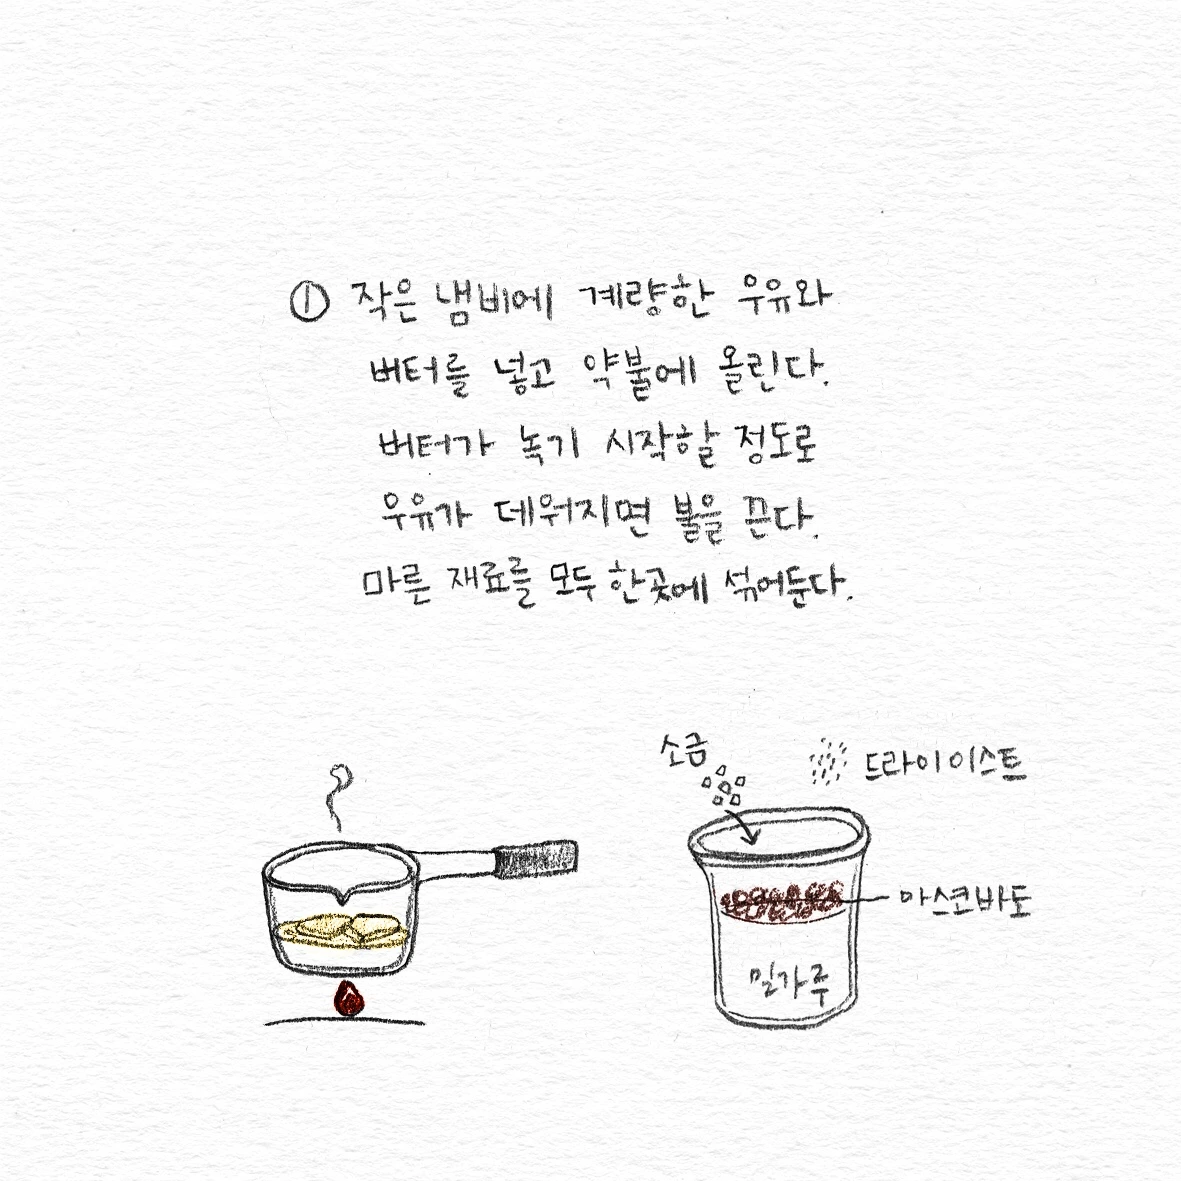 ① 작은 냄비에 계량한 우유와
버터를 넣고 약불에 올린다.
버터가 녹기 시작할 정도로
우유가 데워지면 불을 끈다.
마른 재료를 모두 한곳에 섞어둔다.
소금
드라이 이스트
마스코바도
밀가루